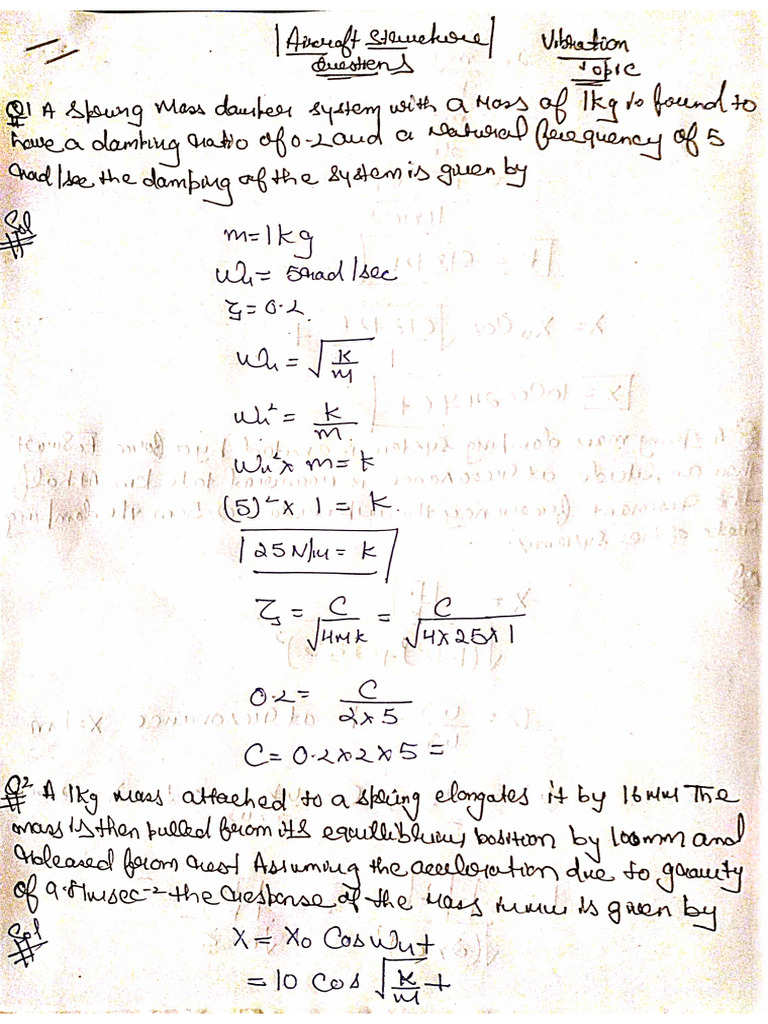 Aircraft Structure
Questions
Vibration
Topic
Q1 A Spring Mass damper system with a mass of 1kg is found to
have a damping ratio of 0.2 and a natural frequency of 5
rad/sec the damping of the system is given by
Sol
m=1kg
ωn= 5rad/sec
ζ=0.2
ωn = √(k/m)
ωn² = k/m
ωn² x m = k
(5)² x 1 = k
25N/m = k
ζ = C/√4mk = C/√4x25x1
0.2 = C/2x5
C= 0.2x2x5 =
Q2 A 1kg mass attached to a spring elongates it by 16mm The
mass is then pulled from its equilibrium position by 100mm and
released from rest Assuming the acceleration due to gravity
of 9.81msec-2 the response of the mass in mm is given by
Sol
X = X0 Cos ωnt
= 10 Cos √(k/m) t